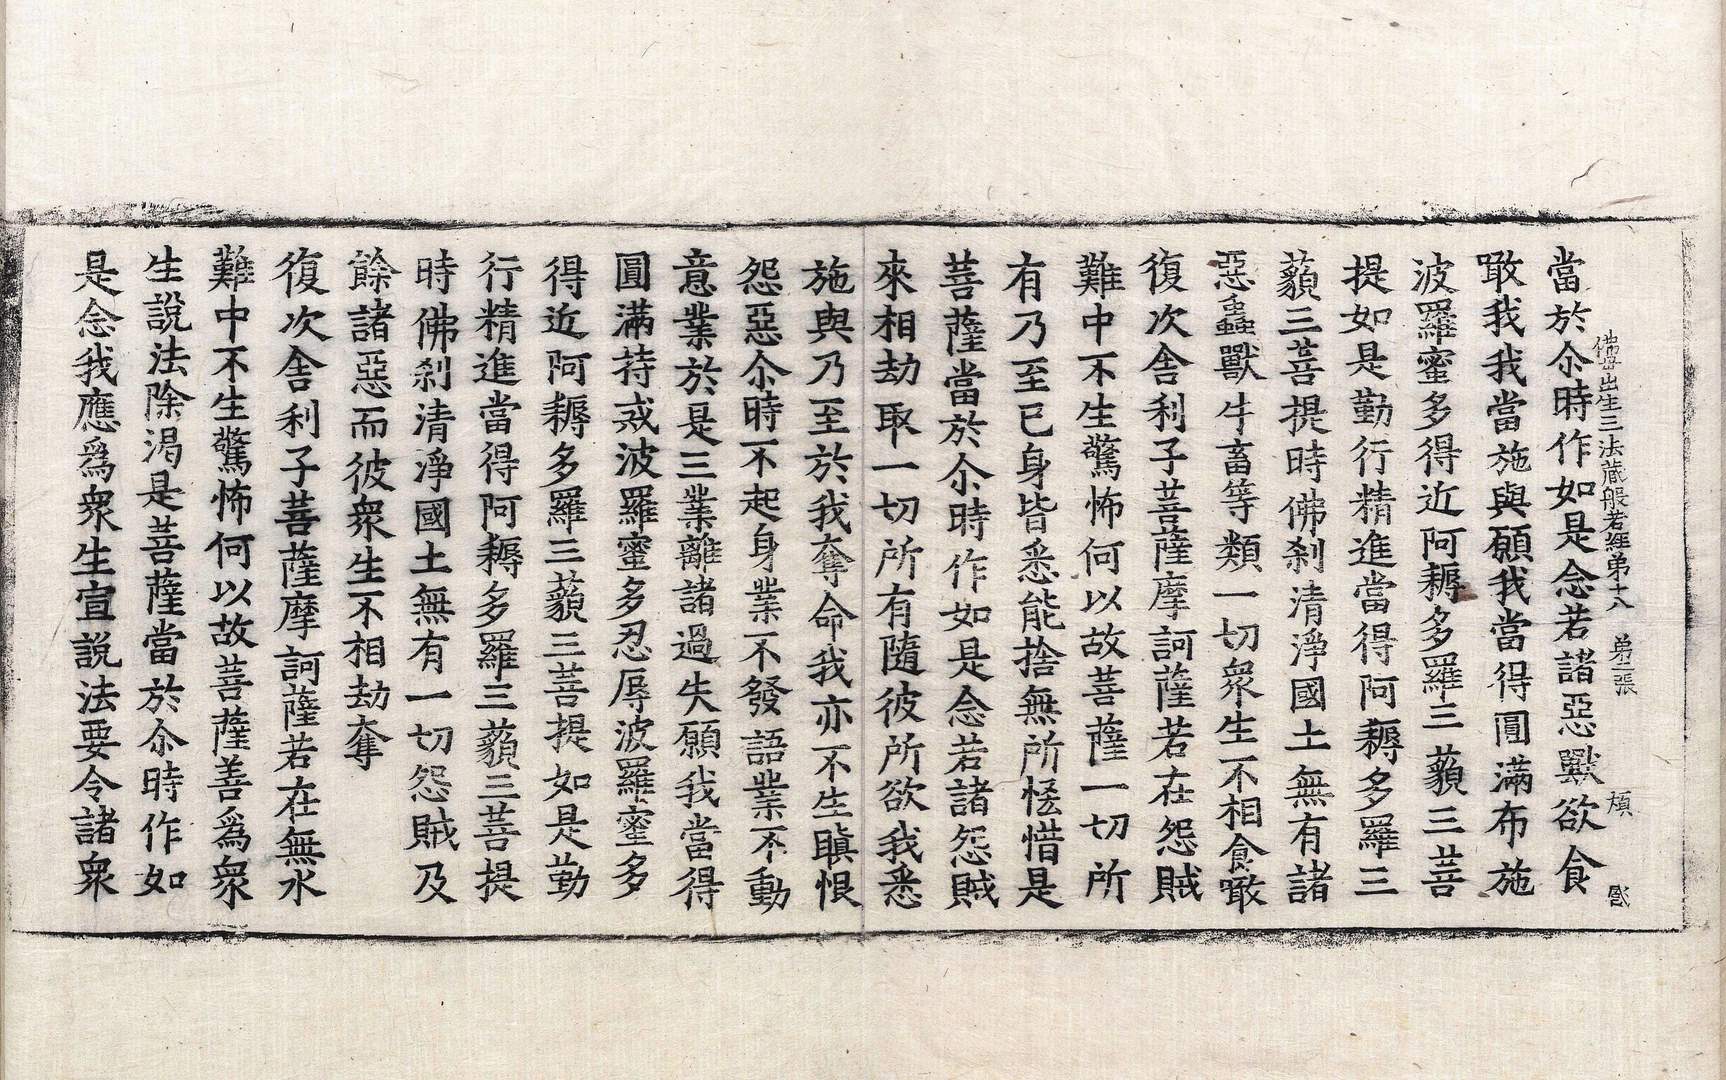 佛母出生三法藏般若經第十八 第三張 煩
當於尒時作如是念若諸惡獸欲食
噉我我當施與願我當得圓滿布施
波羅蜜多得近阿耨多羅三藐三菩
提如是勤行精進當得阿耨多羅三
藐三菩提時佛剎清淨國土無有諸
惡蟲獸牛畜等類一切衆生不相食噉
復次舍利子菩薩摩訶薩若在怨賊
難中不生驚怖何以故菩薩一切所
有乃至已身皆悉能捨無所恡惜是
菩薩當於尒時作如是念若諸怨賊
來相劫取一切所有隨彼所欲我悉
施與乃至於我奪命我亦不生瞋恨
怨惡尒時不起身業不發語業不動
意業於是三業離諸過失願我當得
圓滿持戒波羅蜜多忍辱波羅蜜多
得近阿耨多羅三藐三菩提如是勤
行精進當得阿耨多羅三藐三菩提
時佛剎清淨國土無有一切怨賊及
餘諸惡而彼衆生不相劫奪
復次舍利子菩薩摩訶薩若在無水
難中不生驚怖何以故菩薩善爲衆
生說法除渴是菩薩當於尒時作如
是念我應爲衆生宣說法要令諸衆